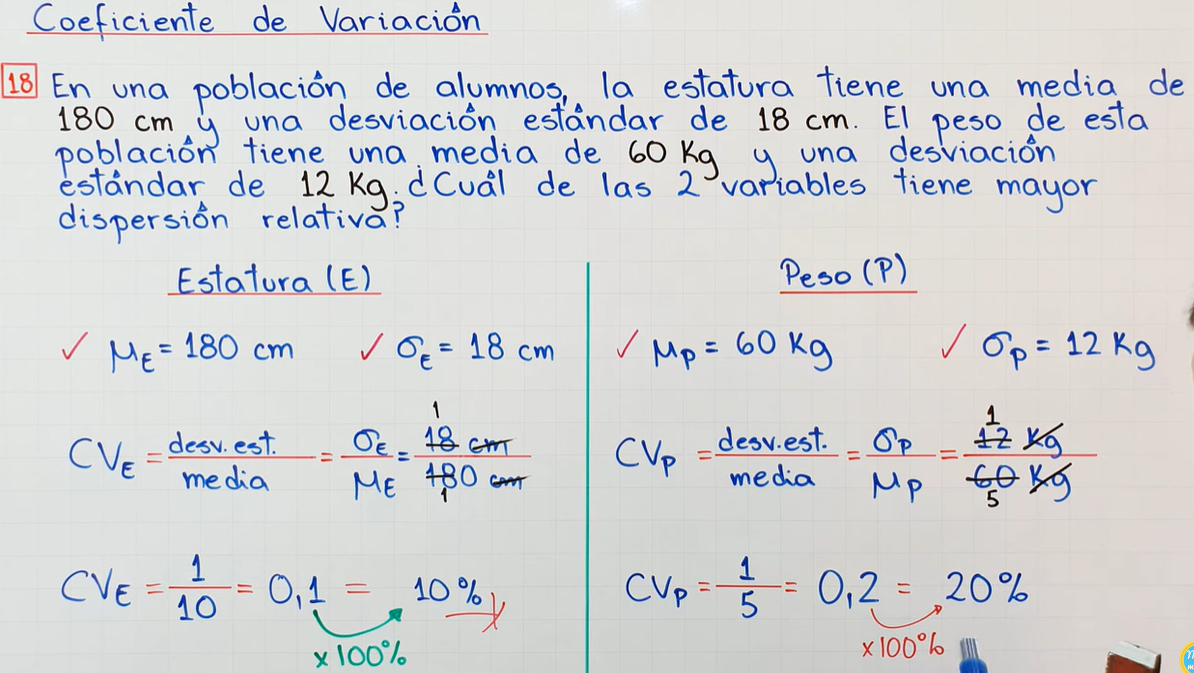 Coeficiente de Variación
18 En una población de alumnos, la estatura tiene una media de
180 cm y una desviación estándar de 18 cm. El peso de esta
población tiene una media de 60 Kg y una desviación
estándar de 12 Kg. ¿Cuál de las 2 variables tiene mayor
dispersión relativa?
Estatura (E)
✓ μE = 180 cm ✓ σE = 18 cm
CVE = desv. est. / media = σE / μE = 18 cm / 180 cm
1
1
CVE = 1/10 = 0,1 = 10%
x100%
Peso (P)
✓ μP = 60 Kg ✓ σP = 12 Kg
CVP = desv. est. / media = σP / μP = 12 Kg / 60 Kg
1
5
CVP = 1/5 = 0,2 = 20%
x100%